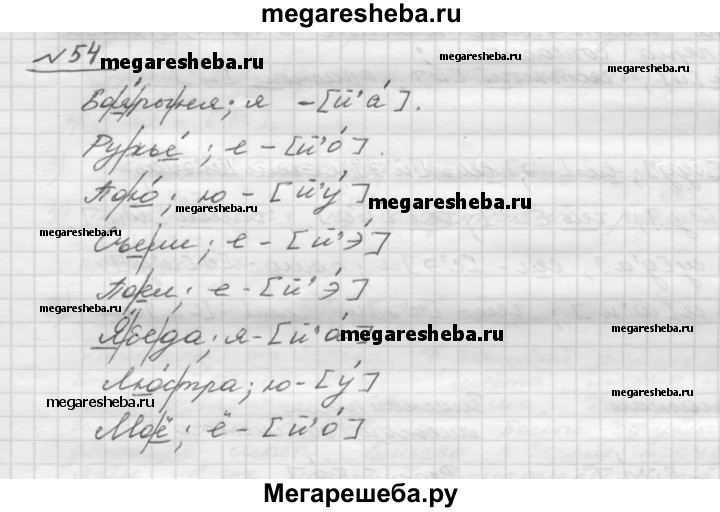 megaresheba.ru
№54 megaresheba.ru megaresheba.ru
Боярыня; я - [й'а́].
Ружьё; е - [й'о́].
Пою; ю - [й'у́] megaresheba.ru
megaresheba.ru
Съели; е - [й'э́]
Поел; е - [й'э́]
megaresheba.ru
Ябеда; я - [й'а́] megaresheba.ru megaresheba.ru
Люстра; ю - [у́]
megaresheba.ru megaresheba.ru
Моё; ё - [й'о́]
megaresheba.ru megaresheba.ru
Мегарешеба.ру